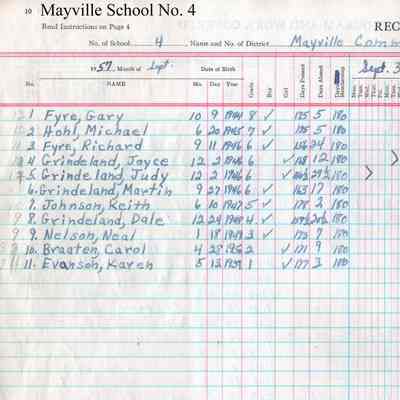 10 Mayville School No. 4
Read Instructions on Page 4
REC
No. of School 4, Name and No. of District Mayville Comm
1957. Month of Sept. Date of Birth Sept. 3
No. NAME Mo. Day Year Grade Boy Girl Days Present Days Absent Mon. Tues. Wed. Thur. Fri. Mon. Tues.
1 Fyre, Gary 10 9 1944 8 ✓ 175 5 180
2 Hohl, Michael 6 20 1945 7 ✓ 175 5 180
3 Fyre, Richard 9 11 1946 6 ✓ 156 24 180
4 Grindeland, Joyce 12 2 1946 6 ✓ 168 12 180
5 Grindeland, Judy 12 2 1946 6 ✓ 180
6. Grindeland, Martin 9 27 1946 6 ✓ 163 17 180
7. Johnson, Keith 6 10 1947 5 ✓ 178 2 180
8. Grindeland, Dale 12 24 1948 4 ✓ 180
9. Nelson, Neal 1 18 1949 3 ✓ 173 7 180
10. Braaten, Carol 4 28 2 ✓ 171 9 180
11. Evanson, Karen 5 13 1951 1 ✓ 177 3 180